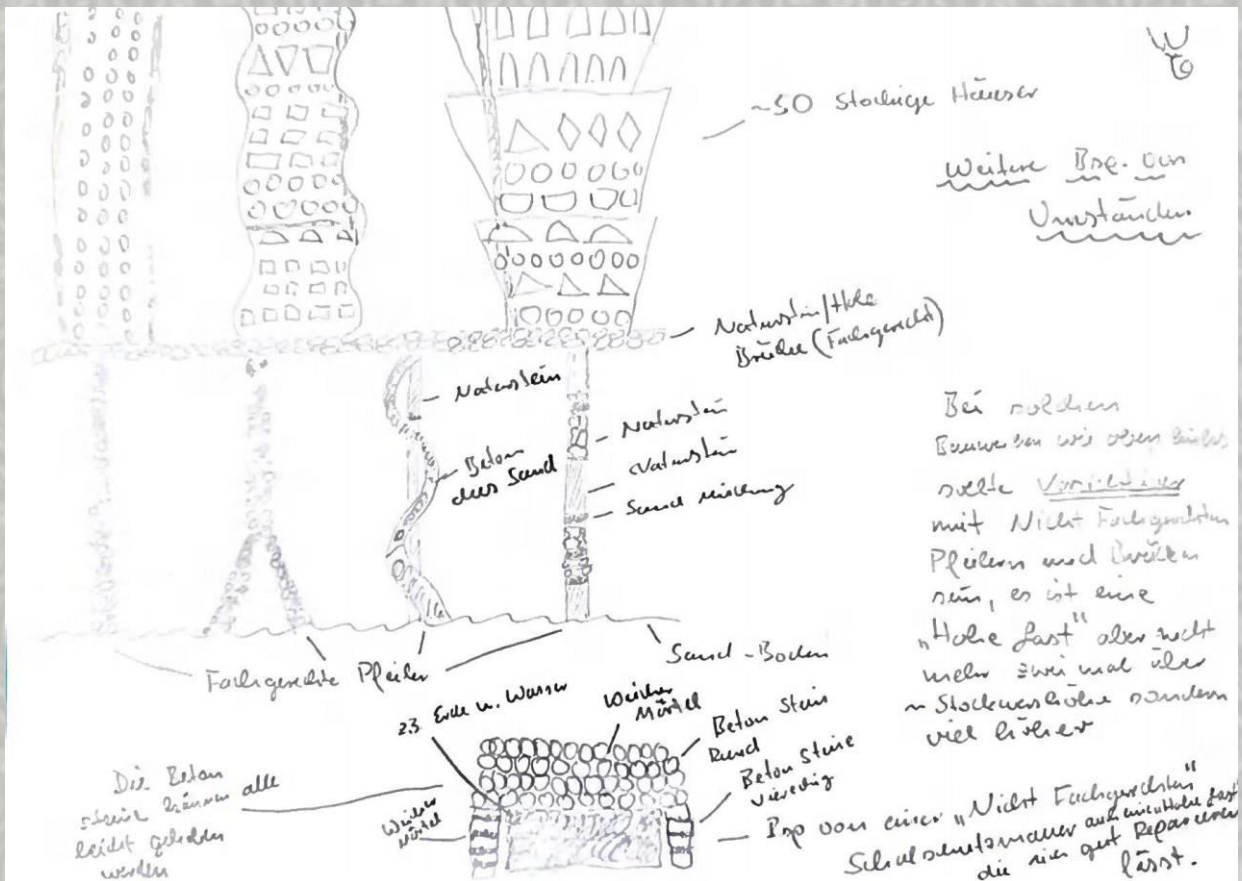 ~50 Stockige Häuser
Weitere Bsp. von
Umständen.
Naturstein/Hohe
Brücke (Fachgerecht)
Naturstein
Beton
aus Sand
Naturstein
Naturstein
Sand Mischung
Bei solchen
Bauwerken wie oben links
sollte
mit Nicht Fachgerechten
Pfeilern und Brücken
sein, es ist eine
„Hohe Last" aber nicht
mehr zwei mal über
~ Stockwerkhöhe sondern
viel höher
Fachgerechte Pfeiler
Sand-Boden
z.B. Erde u. Wasser
Weicher
Mörtel
Beton Stein
Rund
Beton Steine
viereckig
Die Beton
steine können alle
leicht
werden
Weicher
Mörtel
Bsp von einer „Nicht Fachgerechten"
die sich gut Reparieren
lässt.